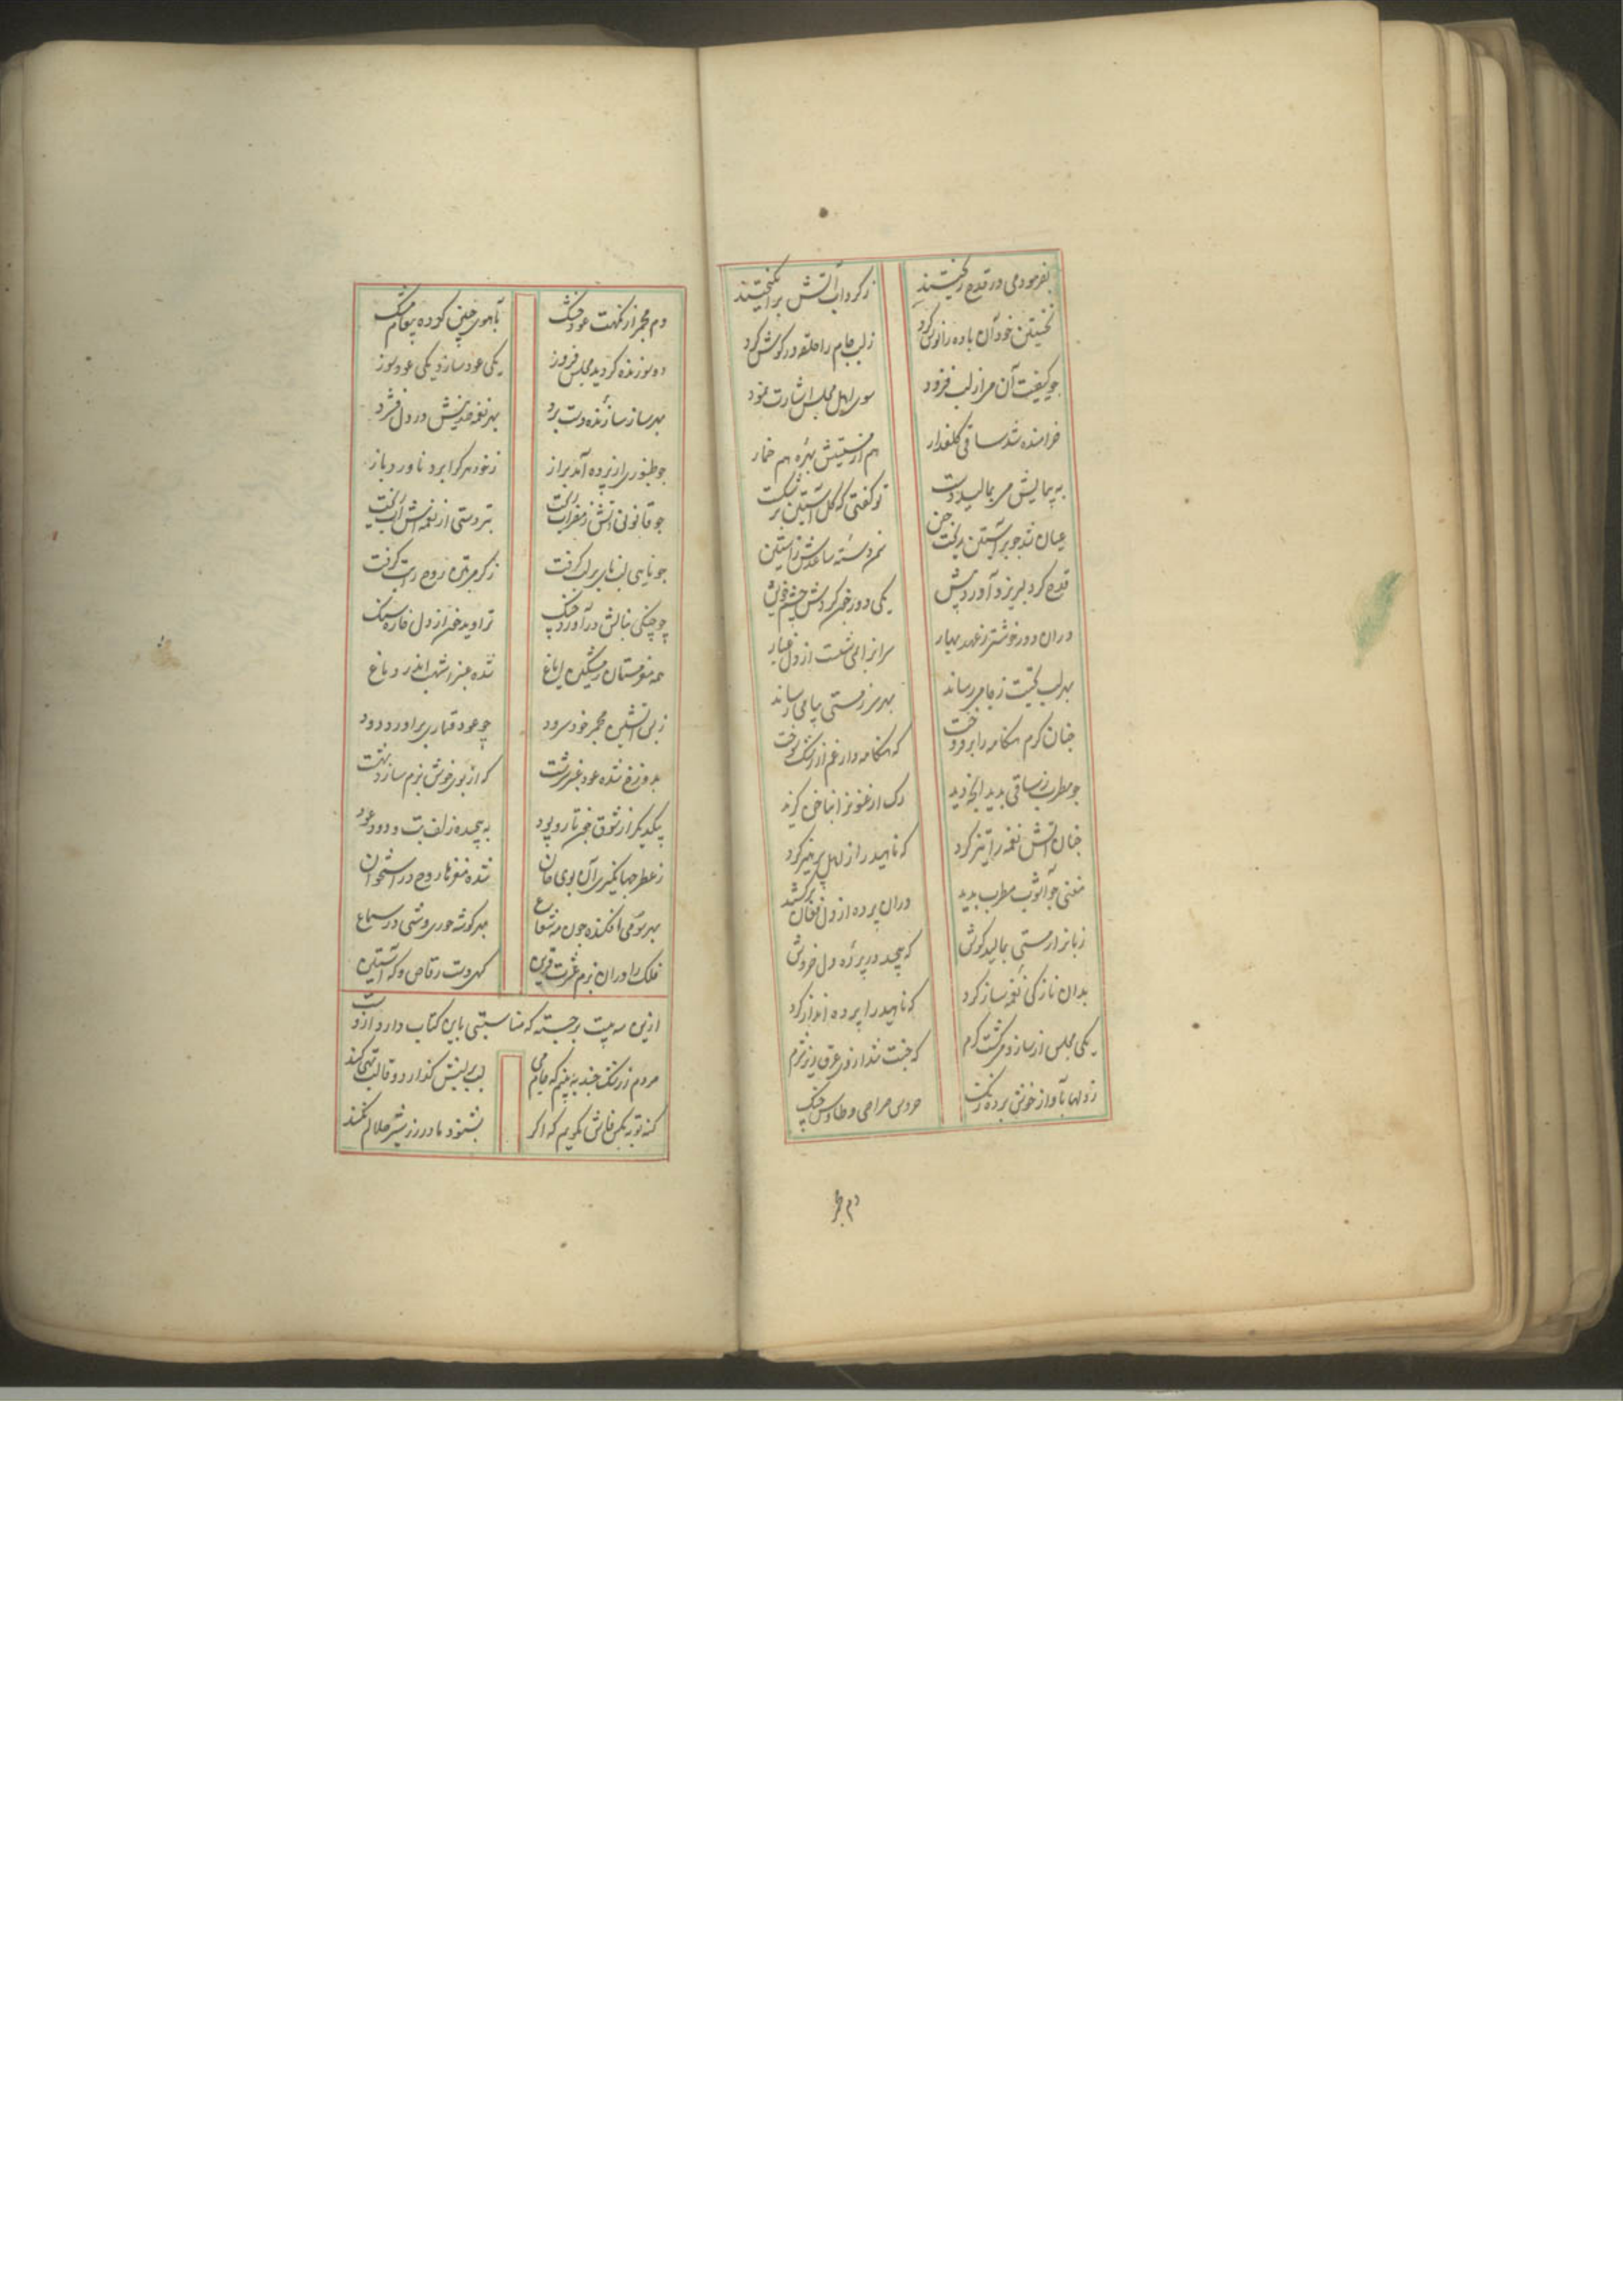 بفرمود می در قدح ریختند
ز گرداب آتش برانگیختند
نخستین خود آن باده را نوش کرد
ز لب جام را حلقه در گوش کرد
چو کیفیت آن می از لب فزود
سوی اهل مجلس اشارت نمود
خرامنده شد ساقی گلعذار
هم از مستیش بهره هم خمار
به پیمایش می بمالید دست
تو گفتی که گل آستین بر شکست
عیان شد چو بر آستین ریخت چین
ز آستین
قدح کرد لبریز و آورد پیش
یکی دور خم کردنش چشم خویش
در آن دور خوشتر ز عهد بهار
سراز ابر می شست از دل غبار
بهر لب نخست ز جامی رساند
بهر سر ز مستی پیامی رساند
چنان گرم هنگامه را برفروخت
که هنگامه دار غم از رشک سوخت
چو مطرب ز ساقی بدید آنچه دید
رک ارغنون را بناخن گزید
چنان آتش نغمه را تیز کرد
که ناهید را از پرهیز کرد
مغنی چو آشوب مطرب بدید
در آن پرده از دل فغان برکشید
زبان را ز مستی بمالید گوش
که پیچید در پرده دل خروش
بدان نازکی نغمه ساز کرد
که ناهید را پرده انداز کرد
یکی مجلس از ساز و می گشت گرم
که جنت شد از وی عرق ریز شرم
ز دلها بآواز خوش برده زنگ
خروس صراحی و طاوس چنگ
دم مجمر
دم مجمر از نکهت عود خشک
بآهوی چین کرده پیغام مشک
دو سوزنده گردید مجلس فروز
یکی عود ساز و یکی عود سوز
بهر ساز سازنده دست برد
بهر نغمه در دل فشرد
چو طنبوری از پرده آمد براز
ز خود هر کرا برد ناورد باز
چو قانونی آتش ز مضراب ریخت
بتردستی از نغمه اش آب ریخت
چو نایی لب نای بر لب گرفت
چو چنگی بنالش درآورد چنگ
تراوید خون از دل خاره سنگ
همه مغز مستان مشکین ایاغ
شده عنبر اشهب اندر دماغ
ز بس آتشین مجمر خود سرود
چو عود قماری برآورد دود
بدوزخ شده عود عنبر سرشت
که از بوی خوش بزم سازد بهشت
بیکدیگر از شوق چون تار و پود
به پیچیده زلف بت و دود عود
ز عطر جهانگیری آن بوی جان
شده مغزها روح در استخوان
بهر سو می افکنده چون مه شعاع
بهر گوشه حوری وشی در سماع
فلک را در آن بزم عشرت قرین
گهی دست رقاص و گه آستین
ازین سه بیت برجسته که مناسبتی باین کتاب دارد از وست
مردم ز رشک چند به بینم که جام می
لب بر لبش گذارد و قالب تهی کند
که توبه بکس فاش نگویم که اگر
بشنود مادر رز شیر حلالم نکند